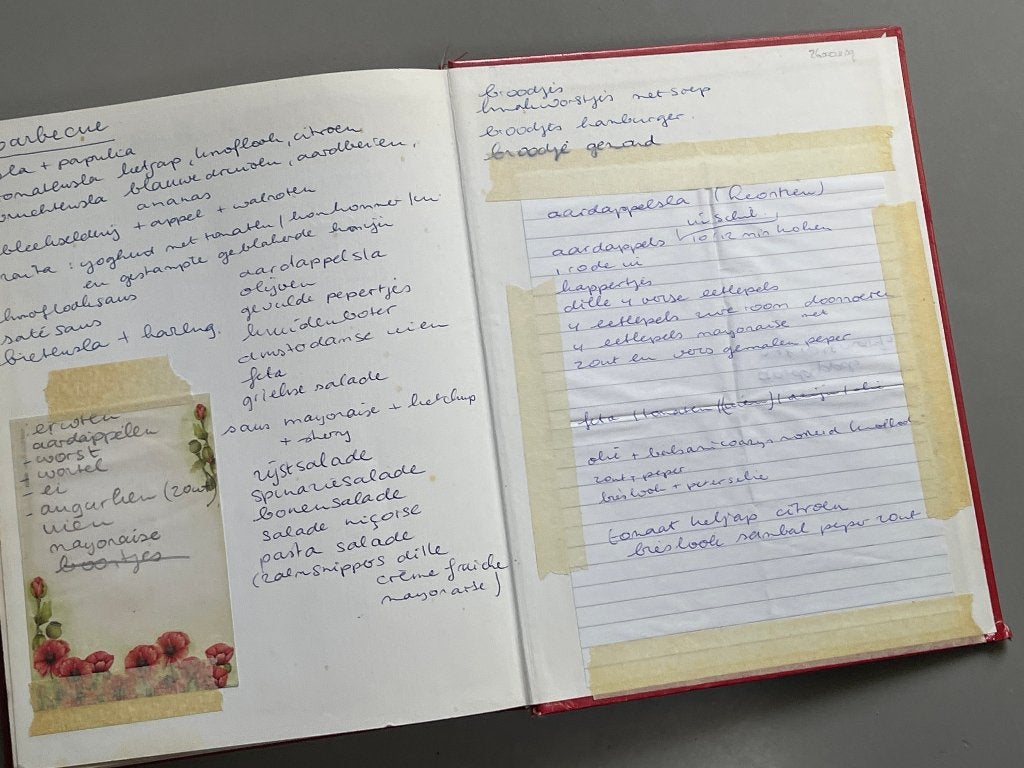 barbecue
sla + paprika
tomatensla ketjap, knoflook, citroen
vruchtensla blauwe druiven, aardbeien,
ananas
bleekselderij + appel + walnoten
raita: yoghurd met tomaten / komkommer / ui
en gestampte geblakerde komijn
knoflooksaus
saté saus
bietensla + haring.
aardappelsla
olijven
gevulde pepertjes
kruidenboter
amsterdamse uien
feta
griekse salade
saus mayonaise + ketchup
+ sherry
rijstsalade
spinaziesalade
bonensalade
salade niçoise
pasta salade
(zalmsnippers dille
crème fraiche
mayonaise)
erwten
aardappelen
- worst
+ wortel
- ei
- augurken (zout)
uien
mayonaise
boontjes
broodjes
knakworstjes met soep
broodjes hamburger.
broodje gezond
aardappelsla (
in schil,
aardappels 10/12 min koken
1 rode ui
kappertjes
dille 4 verse eetlepels
4 eetlepels zure room doorroeren
4 eetlepels mayonaise met
zout en vers gemalen peper
feta
olie + balsamicoazijn knoflook
zout, peper
bieslook + peterselie
tomaat ketjap citroen
bieslook sambal peper zout